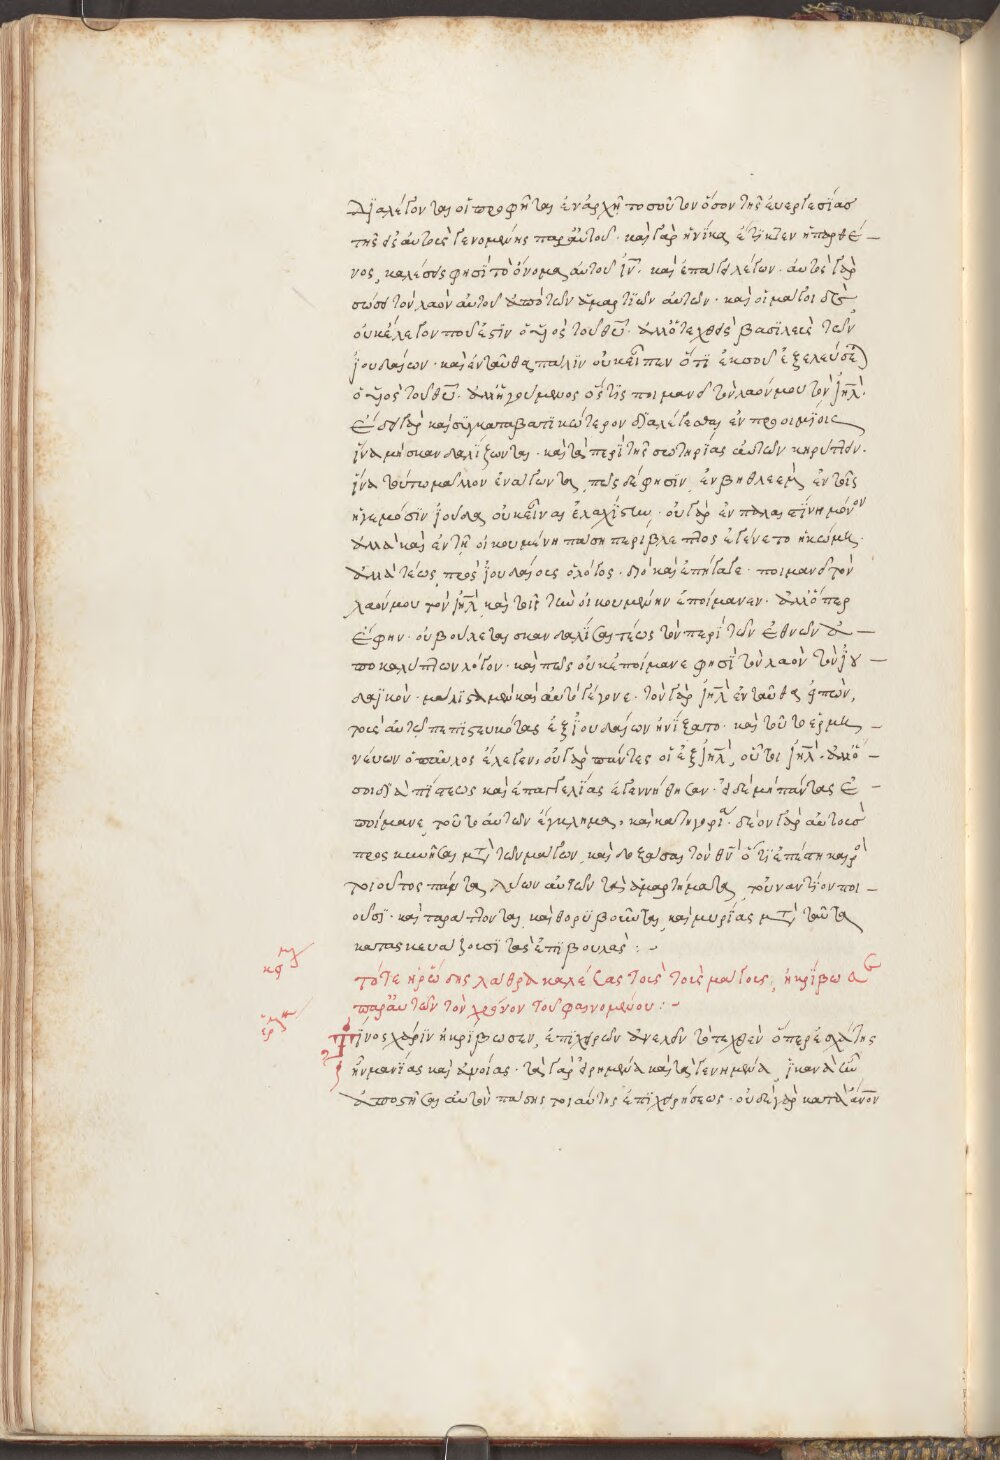 διαλέγονται οἱ προφῆται ἐν ἀρχῇ τοσοῦτον ὅσον τῆς ἐυεργεσίας
τῆς ἐξ ἀυτοῖς γενομένης παρ' ἀυτοῦ· καὶ γὰρ ἡνίκα ἔτικτεν ἡ παρθέ-
νος, καλέσεις φησὶ τὸ ὄνομα αυτοῦ ιν̅· καὶ ἐπαγει λέγων· ἀυτὸς γὰρ
σώσει τὸν λαὸν ἀυτοῦ ἀπὸ τῶν ἁμαρτιῶν ἀυτῶν· καὶ οἱ μάγοι δὲ
οὐκ ἔλεγον ποῦ ἐστιν ὁ υἱὸς τοῦ θυ̅· ἀλλ' ὁ τεχθεὶς βασιλεὺς τῶν
ἰουδαίων· καὶ ἐνταῦθα πάλιν οὐκ εἶπεν ὅτι ἐκ σοῦ ἐξελεύσεται
ὁ υἱὸς τοῦ θυ̅· ἀλλ' ἡγούμενος ὅστις ποιμανεῖ τὸν λαόν μου τὸν ιηλ̅·
ἔδει γὰρ καὶ συγκαταβατικώτερον διαλέγεσθαι ἐν προοιμίοις
ἵνα μὴ σκανδαλίζωνται· καὶ τὰ περὶ τῆς σωτηρίας ἀυτῶν κηρύττειν·
ἵνα τούτω μᾶλλον ἐνάγωνται, πῶς δέ φησιν, ἐν βηθλεὲμ ἐν τοῖς
ἡγεμόσιν ἰούδα οὐκ εἶναι ἐλαχίστην· οὐ γὰρ ἐν παλαιστίνη μόνον
ἀλλὰ καὶ ἐν τῇ οἰκουμένη πάση περίβλεπτος ἐγένετο ἡ κώμη·
ἀλλὰ τέως πρὸς ἰουδαίους ὁ λόγος· διὸ καὶ ἐπήγαγε· ποιμανεῖ τὸν
λαόν μου τὸν ιηλ̅ καίτοι τὴν οἰκουμένην ἐποίμανεν· ἀλλ' ὅπερ
ἔφην· οὐ βούλεται σκανδαλίσαι τέως τὸν περὶ τῶν ἐθνῶν ἀ-
ποκαλύπτων λόγον· καὶ πῶς οὐκ ἐποίμανε φησὶ τὸν λαὸν τὸν ἰου-
δαϊκόν· μάλιστα μὲν καὶ αὐτὸ γέγονε· τὸν γὰρ ιηλ̅ ἐνταῦθα εἰπὼν,
τοὺς αὐτῷ πεπιστευκότας ἐξ ἰουδαίων ἠνίξατο· καὶ τοῦτο ἑρμη-
νεύων ὁ παῦλος ἔλεγεν, οὐ γὰρ πάντες οἱ ἐξ ιηλ̅, οὗτοι ιηλ̅· ἀλλ' ὅ-
σοι διὰ πίστεως καὶ ἐπαγγελίας ἐγεννήθησαν· εἰ δὲ μὴ πάντας ἐ-
ποίμανε, τοῦτο ἀυτῶν ἔγκλημα, καὶ κατηγορία· δέον γὰρ ἀυτοὺς
προσκυνῆσαι μετὰ τῶν μάγων, καὶ δοξάσαι τὸν θν̅ ὅτι ἐπέστη καιρὸς
τοιοῦτος πάντα λύων αὐτῶν τὰ ἁμαρτήματα, τοὐναντίον ποι-
οῦσι· καὶ ταράττονται, καὶ θορυβοῦνται, καὶ μυρίας μετὰ ταῦτα
κατασκευάζουσι τὰς ἐπιβουλάς:
τότε ἡρώδης λάθρα καλέσας τοὺς τοὺς μάγους, ἠκρίβωσε
παρ' ἀυτῶν τὸν χρόνον τοῦ φαινομένου:
Τίνος χάριν ἠκρίβωσεν, ἐπιχειρῶν ἀνελεῖν τὸ τεχθὲν ὅπερ ἐσχάτης
ἦν μανίας καὶ ἀνοίας· τὰ γὰρ εἰρημένα καὶ τὰ γενημένα, ἱκανὰ ἦν
ἀποστῆσαι ἀυτὸν πάσης τοιαύτης ἐπιχειρήσεως· οὐδὲ γὰρ κατὰ ἄνον̅